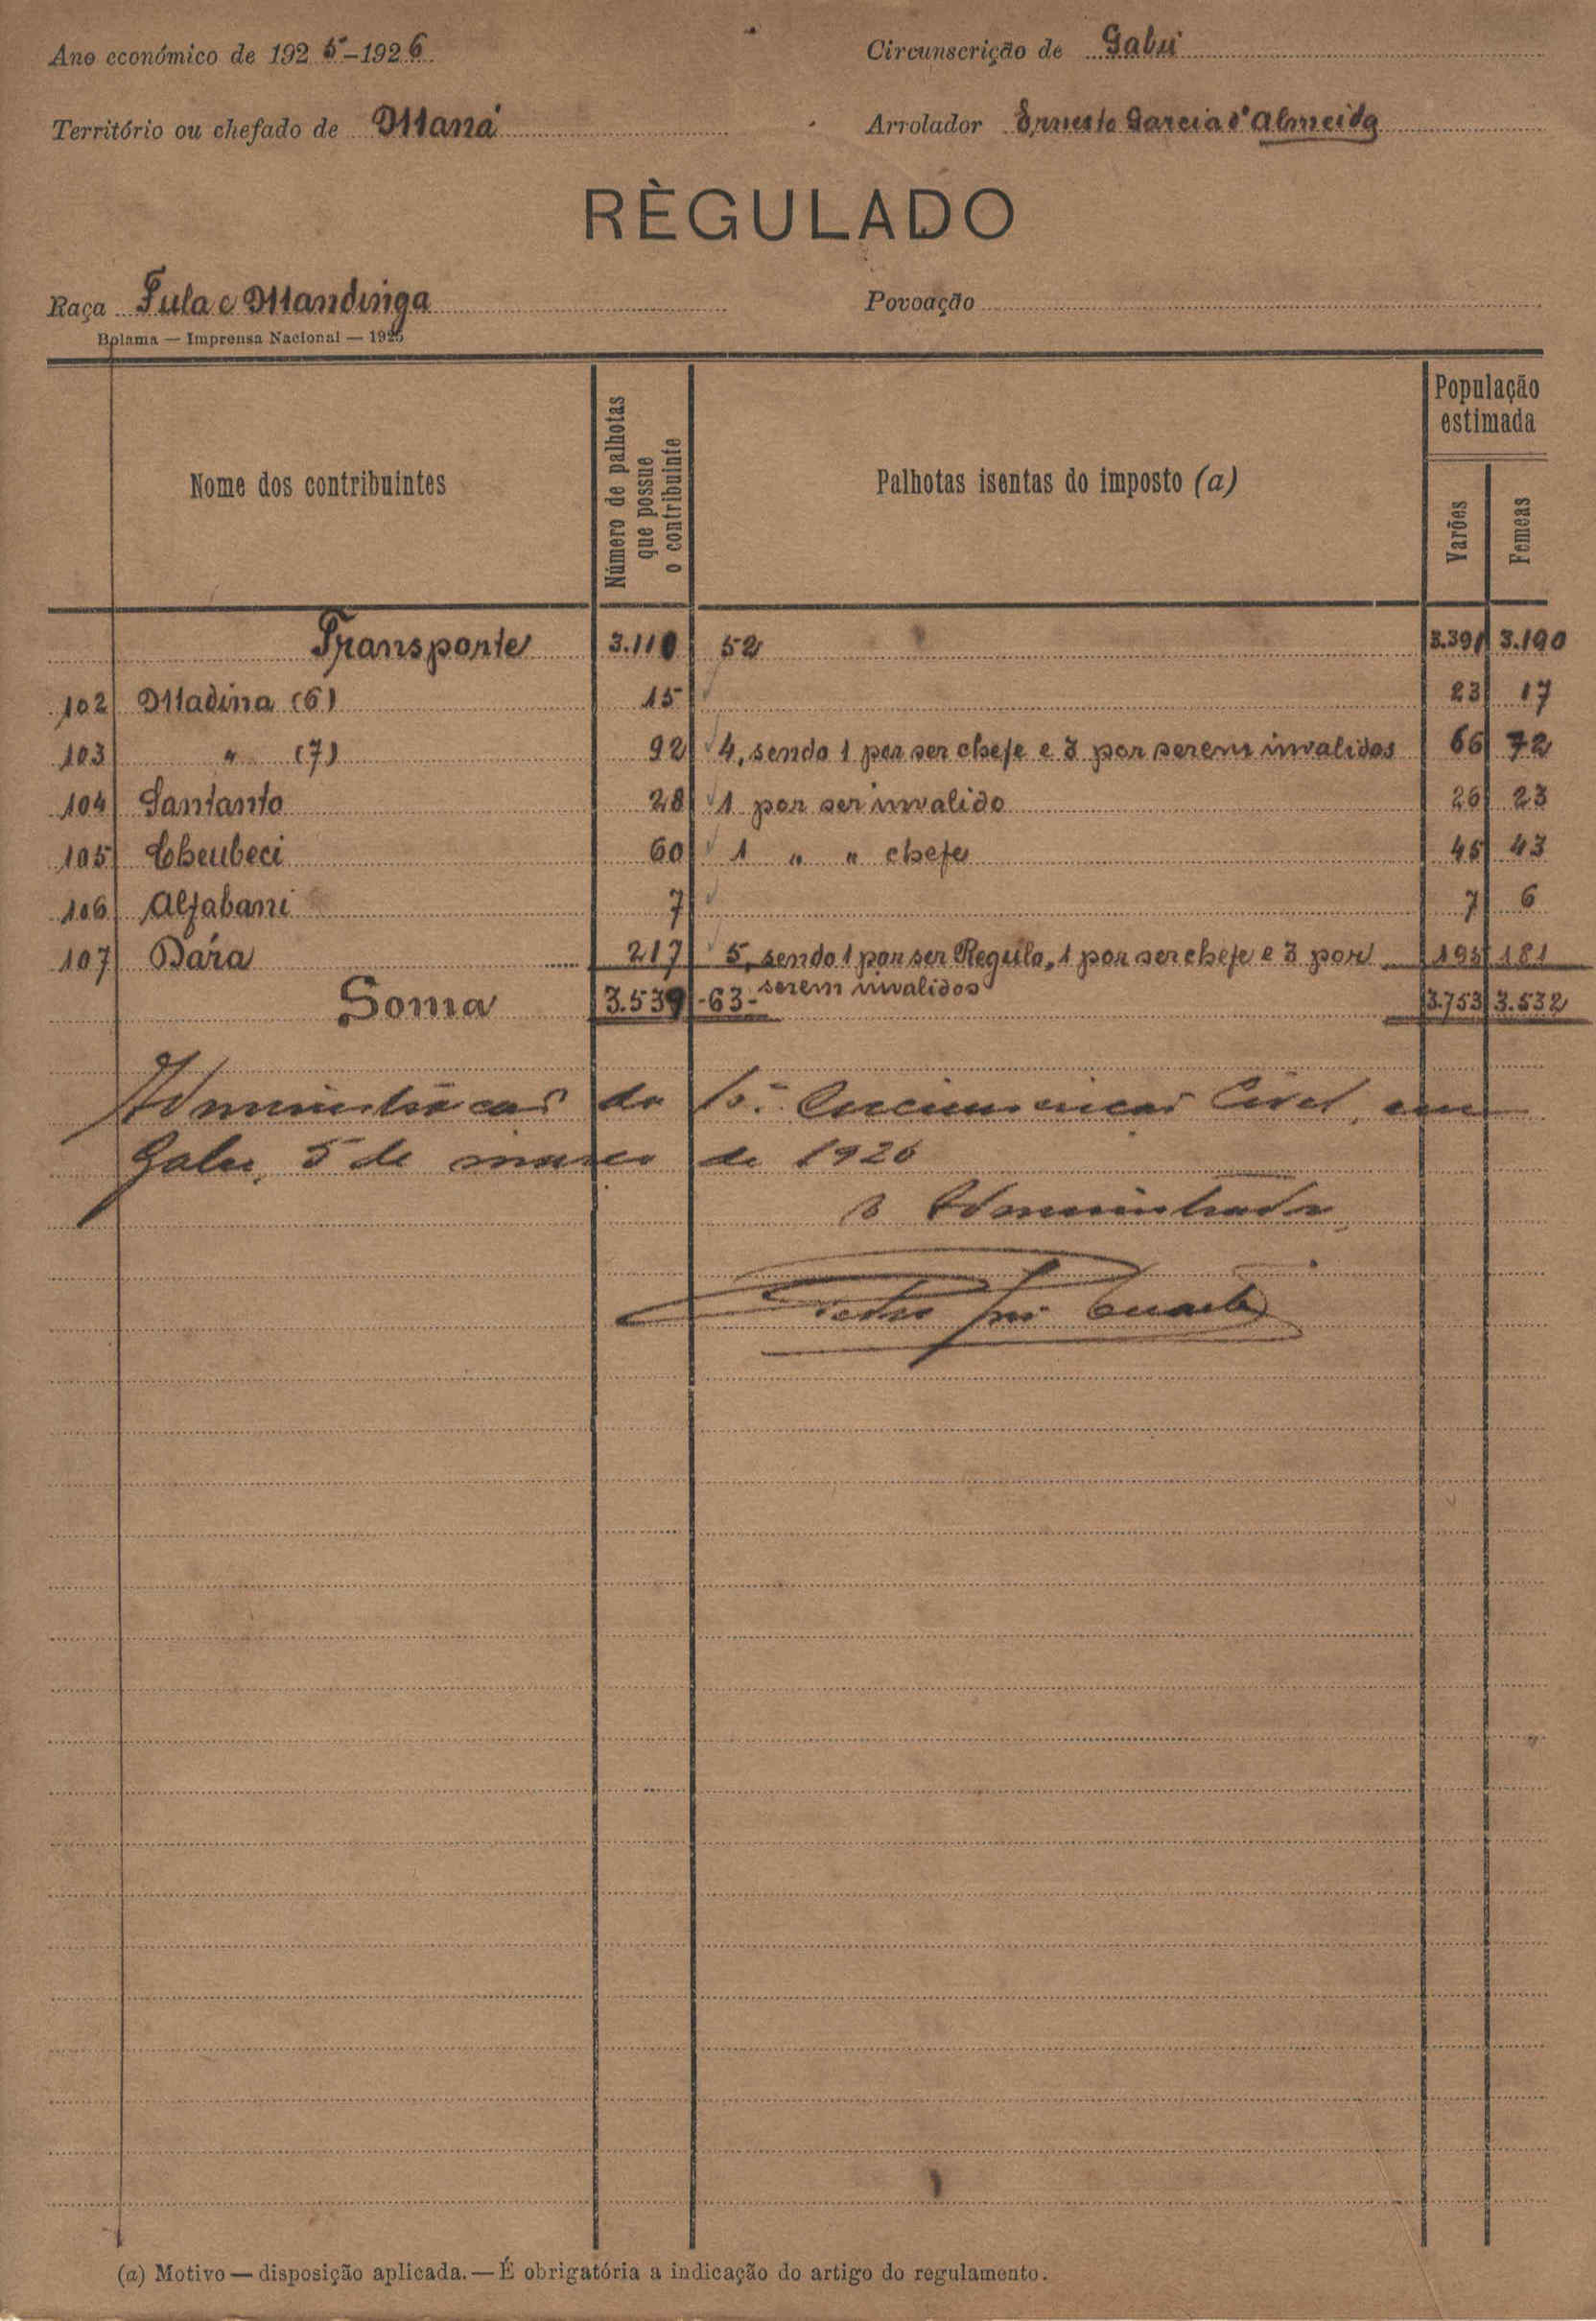 Ano económico de 1925-1926
Circunscrição de Gabú
Território ou chefado de Maná
Arrolador Ernesto Garcia d'Almeida
RÈGULADO
Raça Fula e Mandinga
Povoação
Bolama — Imprensa Nacional — 1925
Nome dos contribuintes
Número de palhotas
que possue
o contribuinte
Palhotas isentas do imposto (a)
População
estimada
Varões
Femeas
Transporte 3.110 52 3.391 3.190
102 Madina (6) 15 23 17
103 " (7) 92 4, sendo 1 por ser chefe e 3 por serem invalidos 66 72
104 Santanto 28 1 por ser invalido 26 23
105 Cheubeci 60 1 " " chefe 45 43
106 Alfabani 7 7 6
107 Dára 217 5, sendo 1 por ser Regulo, 1 por ser chefe e 3 por 195 181
serem invalidos
Soma 3.539 -63- 3.753 3.532
Administração da Circunscrição Civil, em
Gabu, 5 de março de 1926
O Administrador
(a) Motivo — disposição aplicada. — É obrigatória a indicação do artigo do regulamento.